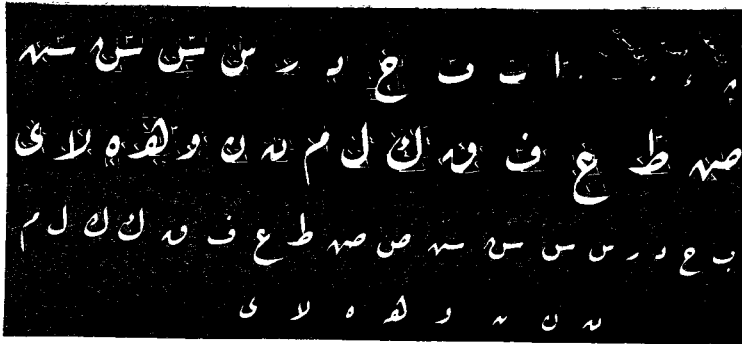 ا ب ب ح د ر س س س س
ص ط ع ف ق ك ل م ن ن و ه ه لا ى
ب ح د ر س س س س ص ص ط ع ف ق ك ك ل م
ن ن ن و ه ه لا ى